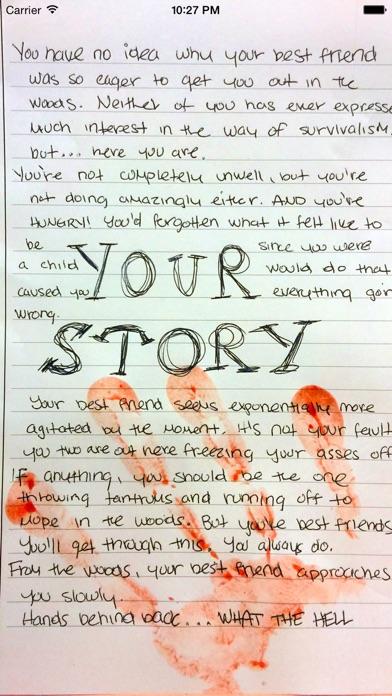 Carrier 10:27 PM
You have no idea why your best friend
was so eager to get you out in the
woods. Neither of you has ever expresse
much interest in the way of survivalism,
but... here you are.
You're not completely unwell, but you're
not doing amazingly either. AND you're
HUNGRY! You'd forgotten what it felt like to
be since you were
a child would do that
caused you everything goin
wrong.
YOUR
STORY
Your best friend seems exponentially more
agitated by the moment. It's not your fault
you two are out here freezing your asses off
If anything, you should be the one
throwing tantrums and running off to
mope in the woods. But you're best friends
You'll get through this. You always do.
From the woods, your best friend approaches
you slowly.
Hands behind back... WHAT THE HELL